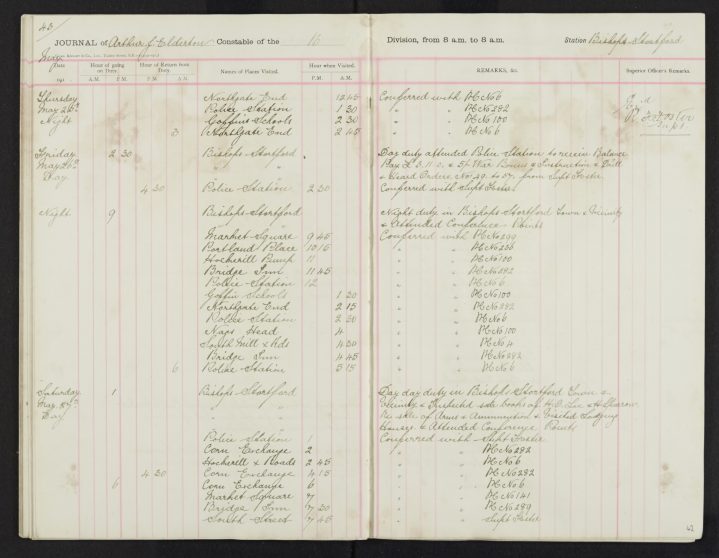 43
JOURNAL of Arthur J. Elderton Constable of the 16 Division, from 8 a.m. to 8 a.m. Station Bishops Stortford
May
Date Hour of going on Duty. Hour of Return from Duty. Names of Places Visited. Hour when Visited. REMARKS, &c. Superior Officer's Remarks.
191 A.M. P.M. A.M. P.M. P.M. A.M.
Thursday Northgate End 12 45 Conferred with PC No 6
May 25th Police Station 1 30 " " PC No 282
Night Goffins Schools 2 30 " " PC No 100
3 Northgate End 2 45 " " PC No 6
Foster
Supt.
Friday 2 30 Bishops Stortford Day duty attended Police Station to receive Balance
May 26th " " Pay £5. 11. 2. & 5/- War Bonus & Instruction & Drill
Day & Heard Orders No. 49 to 57 from Supt Foster
4 30 Police Station 2 30 Conferred with Supt Foster
Night 9 Bishops Stortford Night duty in Bishops Stortford Town & Vicinity
& Attended Conference Points
Market Square 9 45 Conferred with PC No 299
Portland Place 10 15 " " PC No 236
Hockerill Pump 11 " " PC No 100
Bridge Inn 11 45 " " PC No 282
Police Station 12 " " PC No 6
Goffin Schools 1 30 " " PC No 100
Northgate End 2 15 " " PC No 282
Police Station 2 30 " " PC No 6
Nags Head 4 " " PC No 100
South Mill 4 30 " " PC No 4
Bridge Inn 4 45 " " PC No 282
6 Police Station 5 15 " " PC No 6
Saturday 1 Bishops Stortford Day duty in Bishops Stortford Town &
May 27th " " Vicinity & Inspected sale books of
Day " " Re sale of Arms & Ammunition & Visited Lodging
houses & Attended Conference Points
Police Station 1 Conferred with Supt Foster
Corn Exchange 2 " " PC No 282
Hockerill x Roads 2 45 " " PC No 6
4 30 Corn Exchange 4 15 " " PC No 282
6 Corn Exchange 6 " " PC No 6
Market Square 7 " " PC No 141
Bridge Inn 7 30 " " PC No 289
South Street 7 45 " " Supt Foster
42